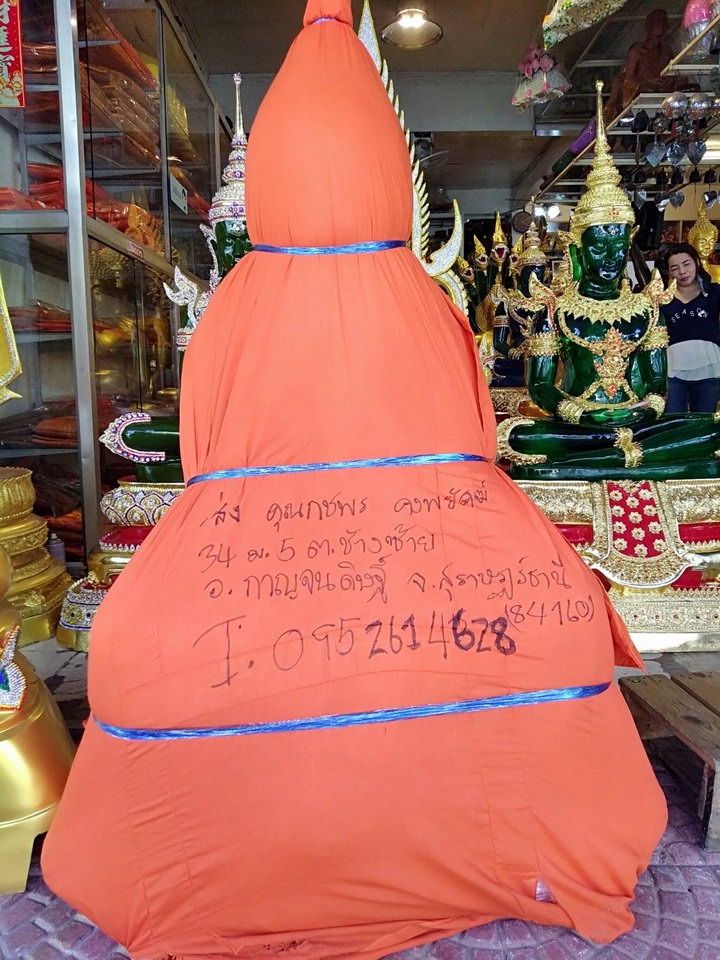 ส่ง คุณกชพร คงพยัคฆ์
34 ม.5 ต.ช้างซ้าย
อ.กาญจนดิษฐ์ จ.สุราษฎร์ธานี
(84160)
T. 095 2614628
SEASON